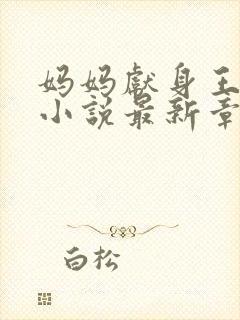 妈妈献身王
小说最新章
白松